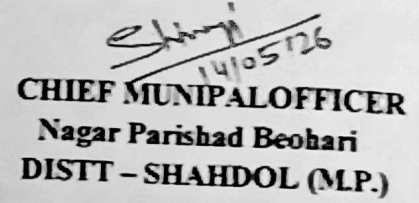 14/05/26
CHIEF MUNIPALOFFICER
Nagar Parishad Beohari
DISTT – SHAHDOL (M.P.)